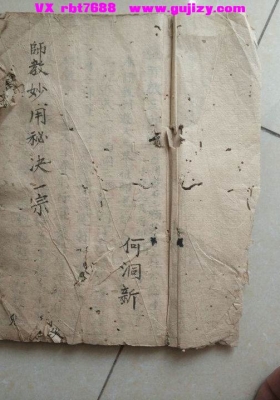 VX rbt7688 www.gujizy.com
師教妙用秘决一宗
何洞新